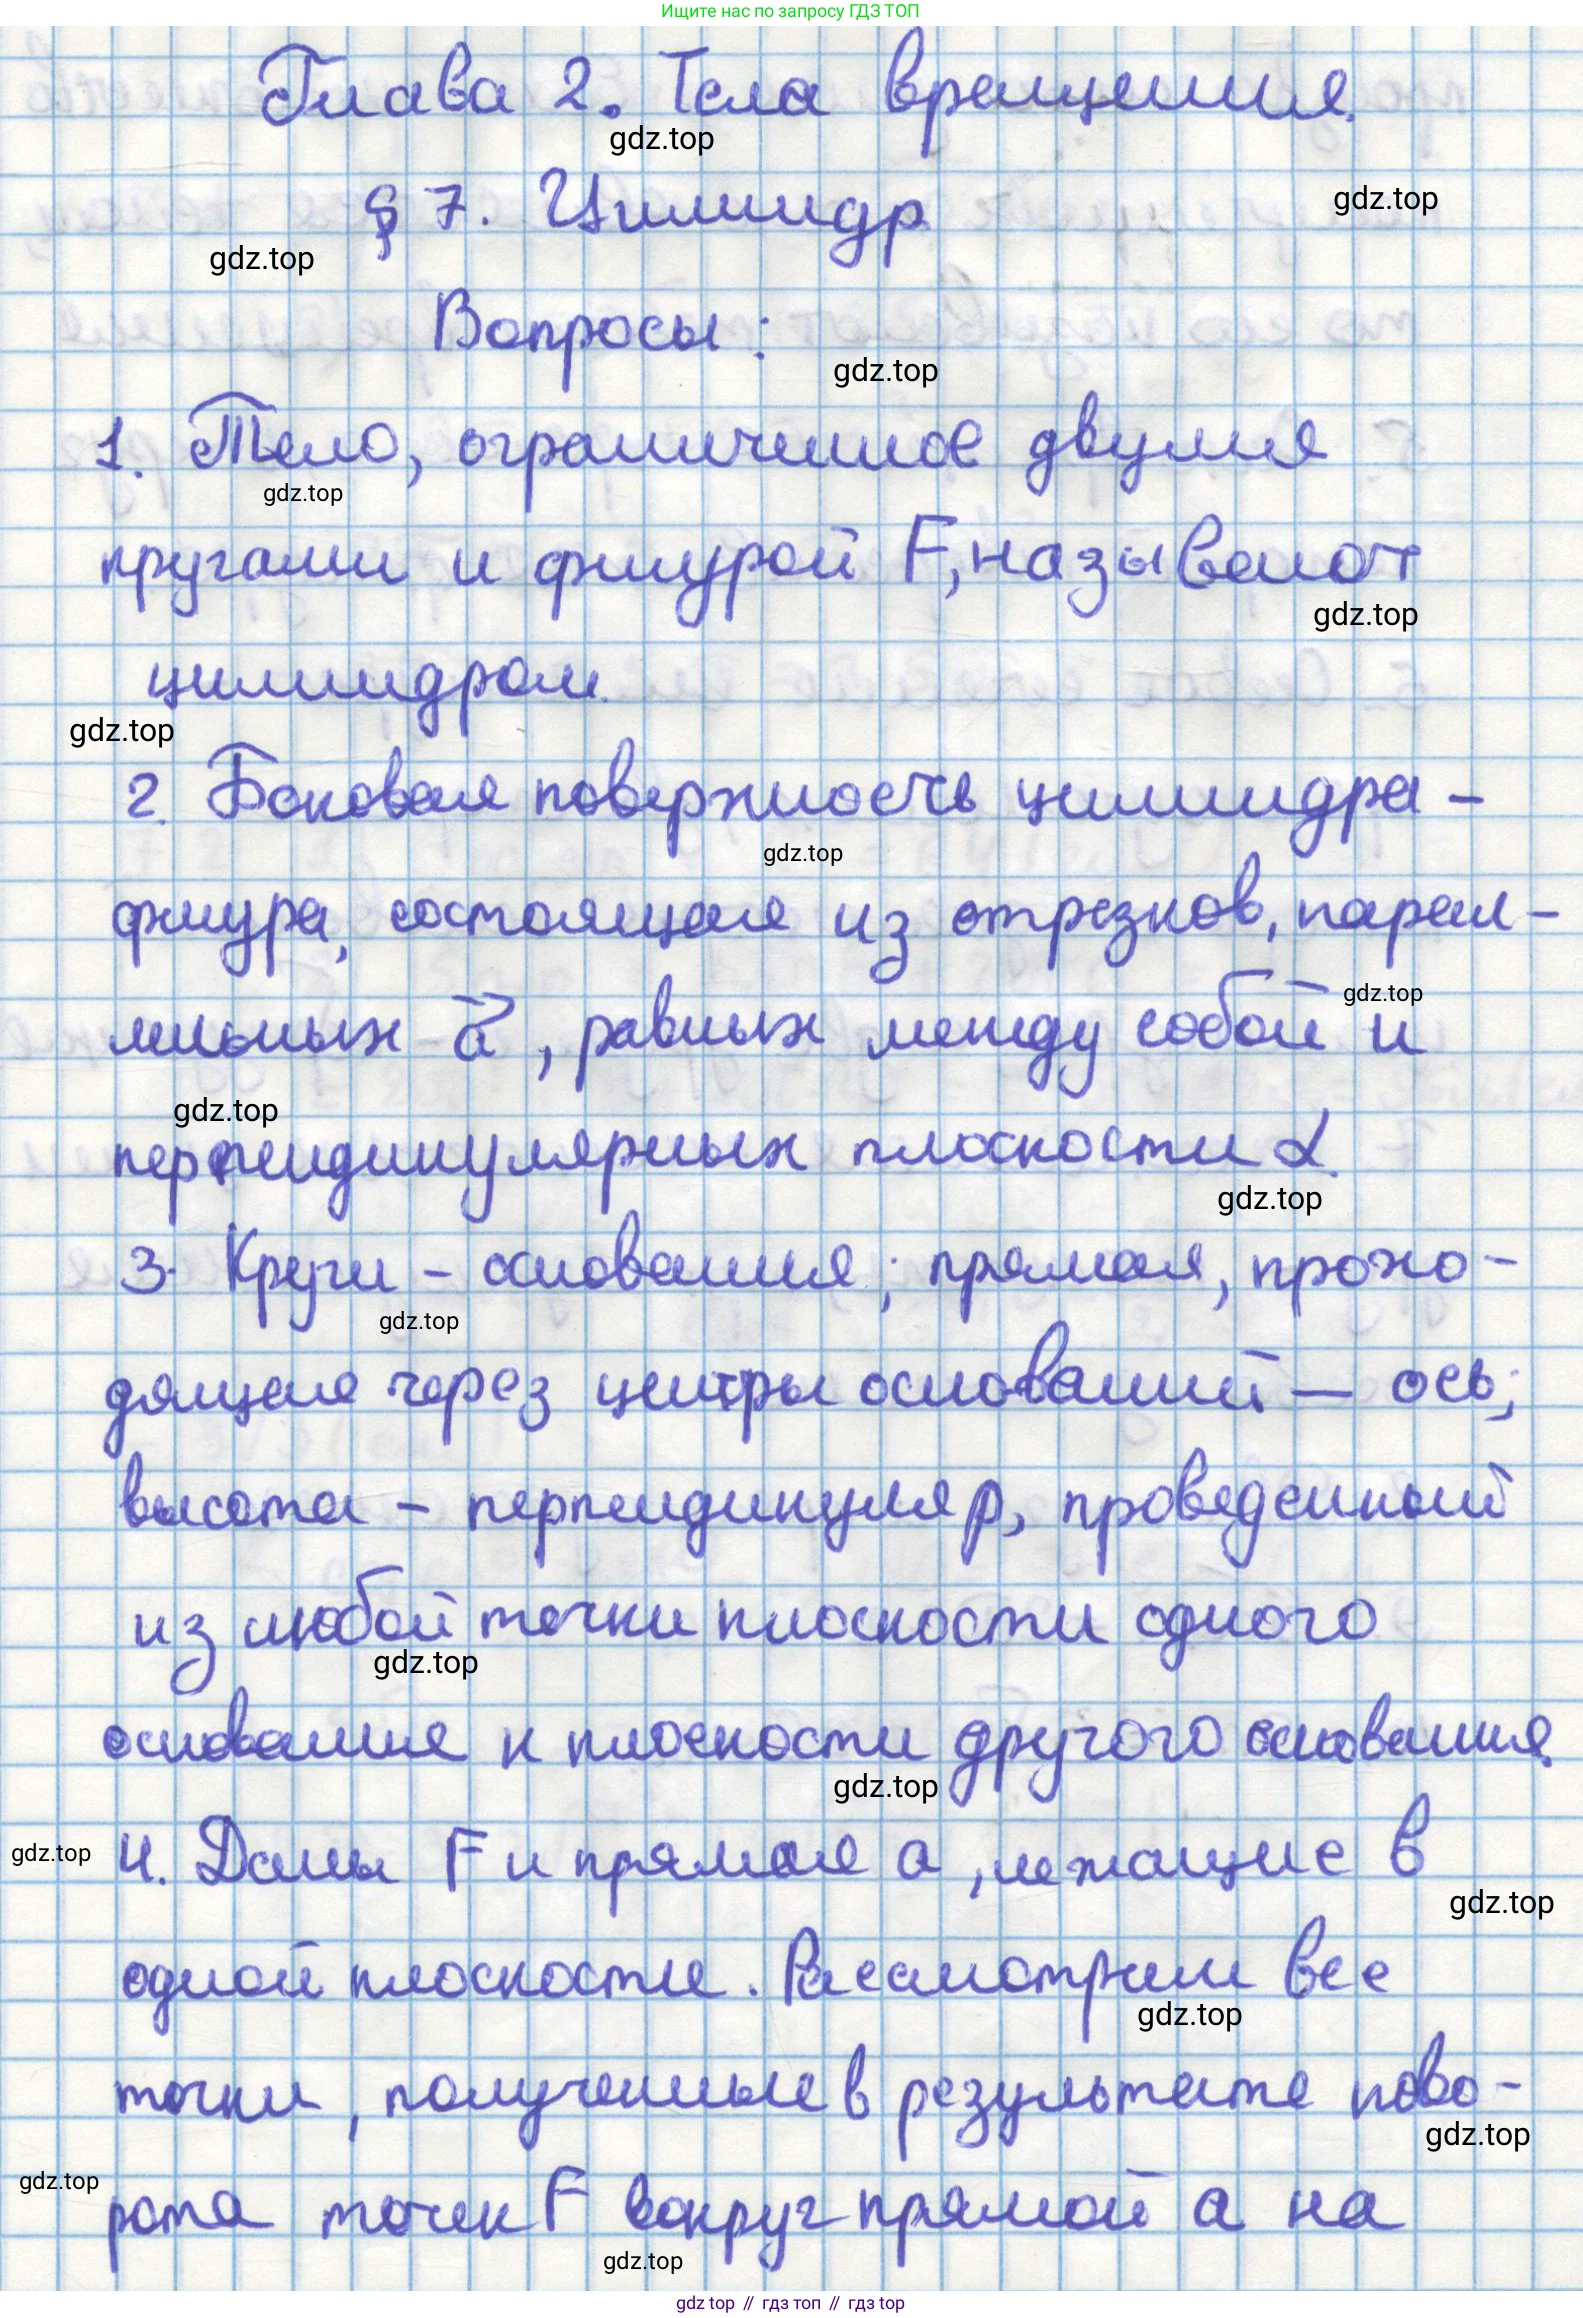 Ищите нас по запросу ГДЗ ТОП
Глава 2. Тела вращения.
gdz.top
§ 7. Цилиндр
gdz.top
gdz.top
Вопросы:
gdz.top
1. Тело, ограниченное двумя
gdz.top
кругами и фигурой F, называют
gdz.top
цилиндром.
gdz.top
2. Боковая поверхность цилиндра -
gdz.top
фигура, состоящая из отрезков, парал-
gdz.top
лельных a⃗, равных между собой и
gdz.top
перпендикулярных плоскости α.
gdz.top
3. Круги - основания; прямая, прохо-
gdz.top
дящая через центры оснований — ось;
высота - перпендикуляр, проведенный
из любой точки плоскости одного
gdz.top
основания к плоскости другого основания.
gdz.top
gdz.top
4. Даны F и прямая a, лежащие в
gdz.top
одной плоскости. Рассмотрим все
gdz.top
точки, полученные в результате пово-
gdz.top
gdz.top
рота точек F вокруг прямой a на
gdz.top
gdz top // гдз топ // гдз top